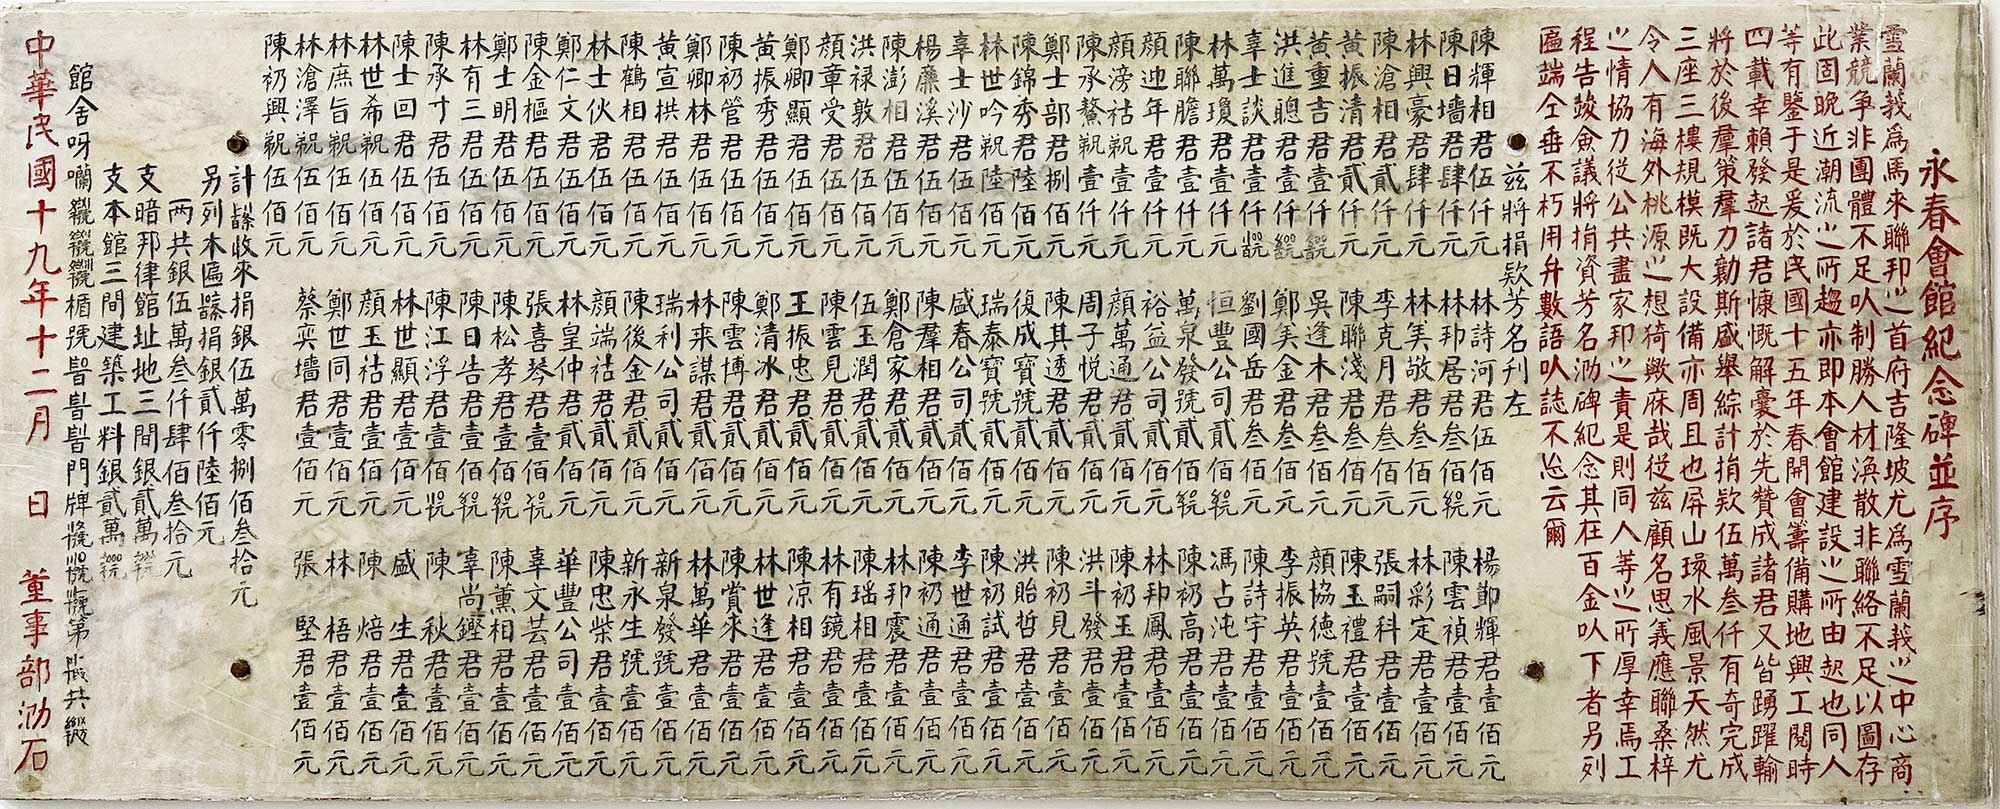 永春會館紀念碑並序
雪蘭莪爲馬來聯邦之首府吉隆坡尤爲雪蘭莪之中心商
業競争非團體不足以制勝人材渙散非聯絡不足以圖存
此固晚近潮流之所趨亦即本會館建設之所由起也同人
等有鑒于是爰於民國十五年春開會籌備購地興工閱時
四載幸賴發起諸君慷慨解囊於先贊成諸君又皆踴躍輸
將於後羣策羣力勷斯盛舉綜計捐欵伍萬叁仟有奇完成
三座三樓規模既大設備亦周且也屏山瑛水風景天然尤
令人有海外桃源之想猗歟庥哉從兹顧名思義應聯桑梓
之情協力從公共盡家邦之責是則同人等之所厚幸焉工
程告竣僉議將捐資芳名泐碑紀念其在百金以下者另列
匾端仝垂不朽用弁數語以誌不忘云爾
兹將捐欵芳名刋左
陳輝相君伍仟元
陳日墻君肆仟元
林興豪君肆仟元
陳滄相君貳仟元
黄振清君貳仟元
黄重吉君壹仟
洪進聰君壹仟
辜士談君壹仟
林萬瓊君壹仟元
陳聯膽君壹仟元
顔迊年君壹仟元
顔滂祜君壹仟元
陳承鰲君壹仟元
鄭士部君捌佰元
陳錦秀君陸佰元
林世吟君陸佰元
辜士沙君伍佰元
楊廉溪君伍佰元
陳澎相君伍佰元
洪禄敦君伍佰元
顔章受君伍佰元
鄭卿顯君伍佰元
黄振秀君伍佰元
陳礽管君伍佰元
鄭卿林君伍佰元
黄宣拱君伍佰元
陳鶴相君伍佰元
林士伙君伍佰元
鄭仁文君伍佰元
陳金樞君伍佰元
鄭士明君伍佰元
林有三君伍佰元
陳承寸君伍佰元
陳士回君伍佰元
林世希君伍佰元
林庶旨君伍佰元
林滄澤君伍佰元
陳礽興君伍佰元
林詩河君伍佰元
林邦居君叁佰
林美敬君叁佰元
李克月君叁佰元
陳聯淺君叁佰元
吳逢木君叁佰元
鄭美金君叁佰元
劉國岳君叁佰元
恒豐公司貳佰
萬泉發號貳佰
裕益公司貳佰元
顔萬通君貳佰元
周子悦君貳佰元
陳其透君貳佰元
復成寳號貳佰元
瑞泰寳號貳佰元
盛春公司貳佰元
陳羣相君貳佰元
鄭倉家君貳佰元
伍玉潤君貳佰元
陳雲見君貳佰元
王振忠君貳佰元
鄭清冰君貳佰元
陳雲博君貳佰元
林来謀君貳佰元
瑞利公司貳佰元
陳後金君貳佰元
顔端祜君貳佰元
林皇仲君貳佰元
張喜琴君壹佰
陳松孝君壹佰
陳日告君壹佰
陳江浮君壹佰
林世顯君壹佰元
顔玉祜君壹佰元
鄭世同君壹佰元
蔡奕墻君壹佰元
楊鄭輝君壹佰元
陳雲禎君壹佰元
林彩定君壹佰元
張嗣科君壹佰元
陳玉禮君壹佰元
顔協德號壹佰元
李振英君壹佰元
陳詩字君壹佰元
馮占沌君壹佰元
陳礽高君壹佰元
林邦鳳君壹佰元
陳礽玉君壹佰元
洪斗發君壹佰元
陳礽見君壹佰元
洪貽哲君壹佰元
陳礽試君壹佰元
李世通君壹佰元
陳礽通君壹佰元
林邦震君壹佰元
陳瑶相君壹佰元
林有鏡君壹佰元
陳凉相君壹佰元
林世逢君壹佰元
陳賞來君壹佰元
林萬華君壹佰元
新泉發號壹佰元
新永生號壹佰元
陳忠柴君壹佰元
華豐公司壹佰元
辜文芸君壹佰元
陳薫相君壹佰元
辜尚鏗君壹佰元
陳秋君壹佰元
盛生君壹佰元
陳焙君壹佰元
林梧君壹佰元
張堅君壹佰元
計收來捐銀伍萬零捌佰叁拾元
另列本匾捐銀貳仟陸佰元
两共銀伍萬叁仟肆佰叁拾元
支暗邦律館址地三間銀貳萬
支本館三間建築工料銀貳萬
館舍呀囒
中華民國十九年十二月 日 董事部泐石